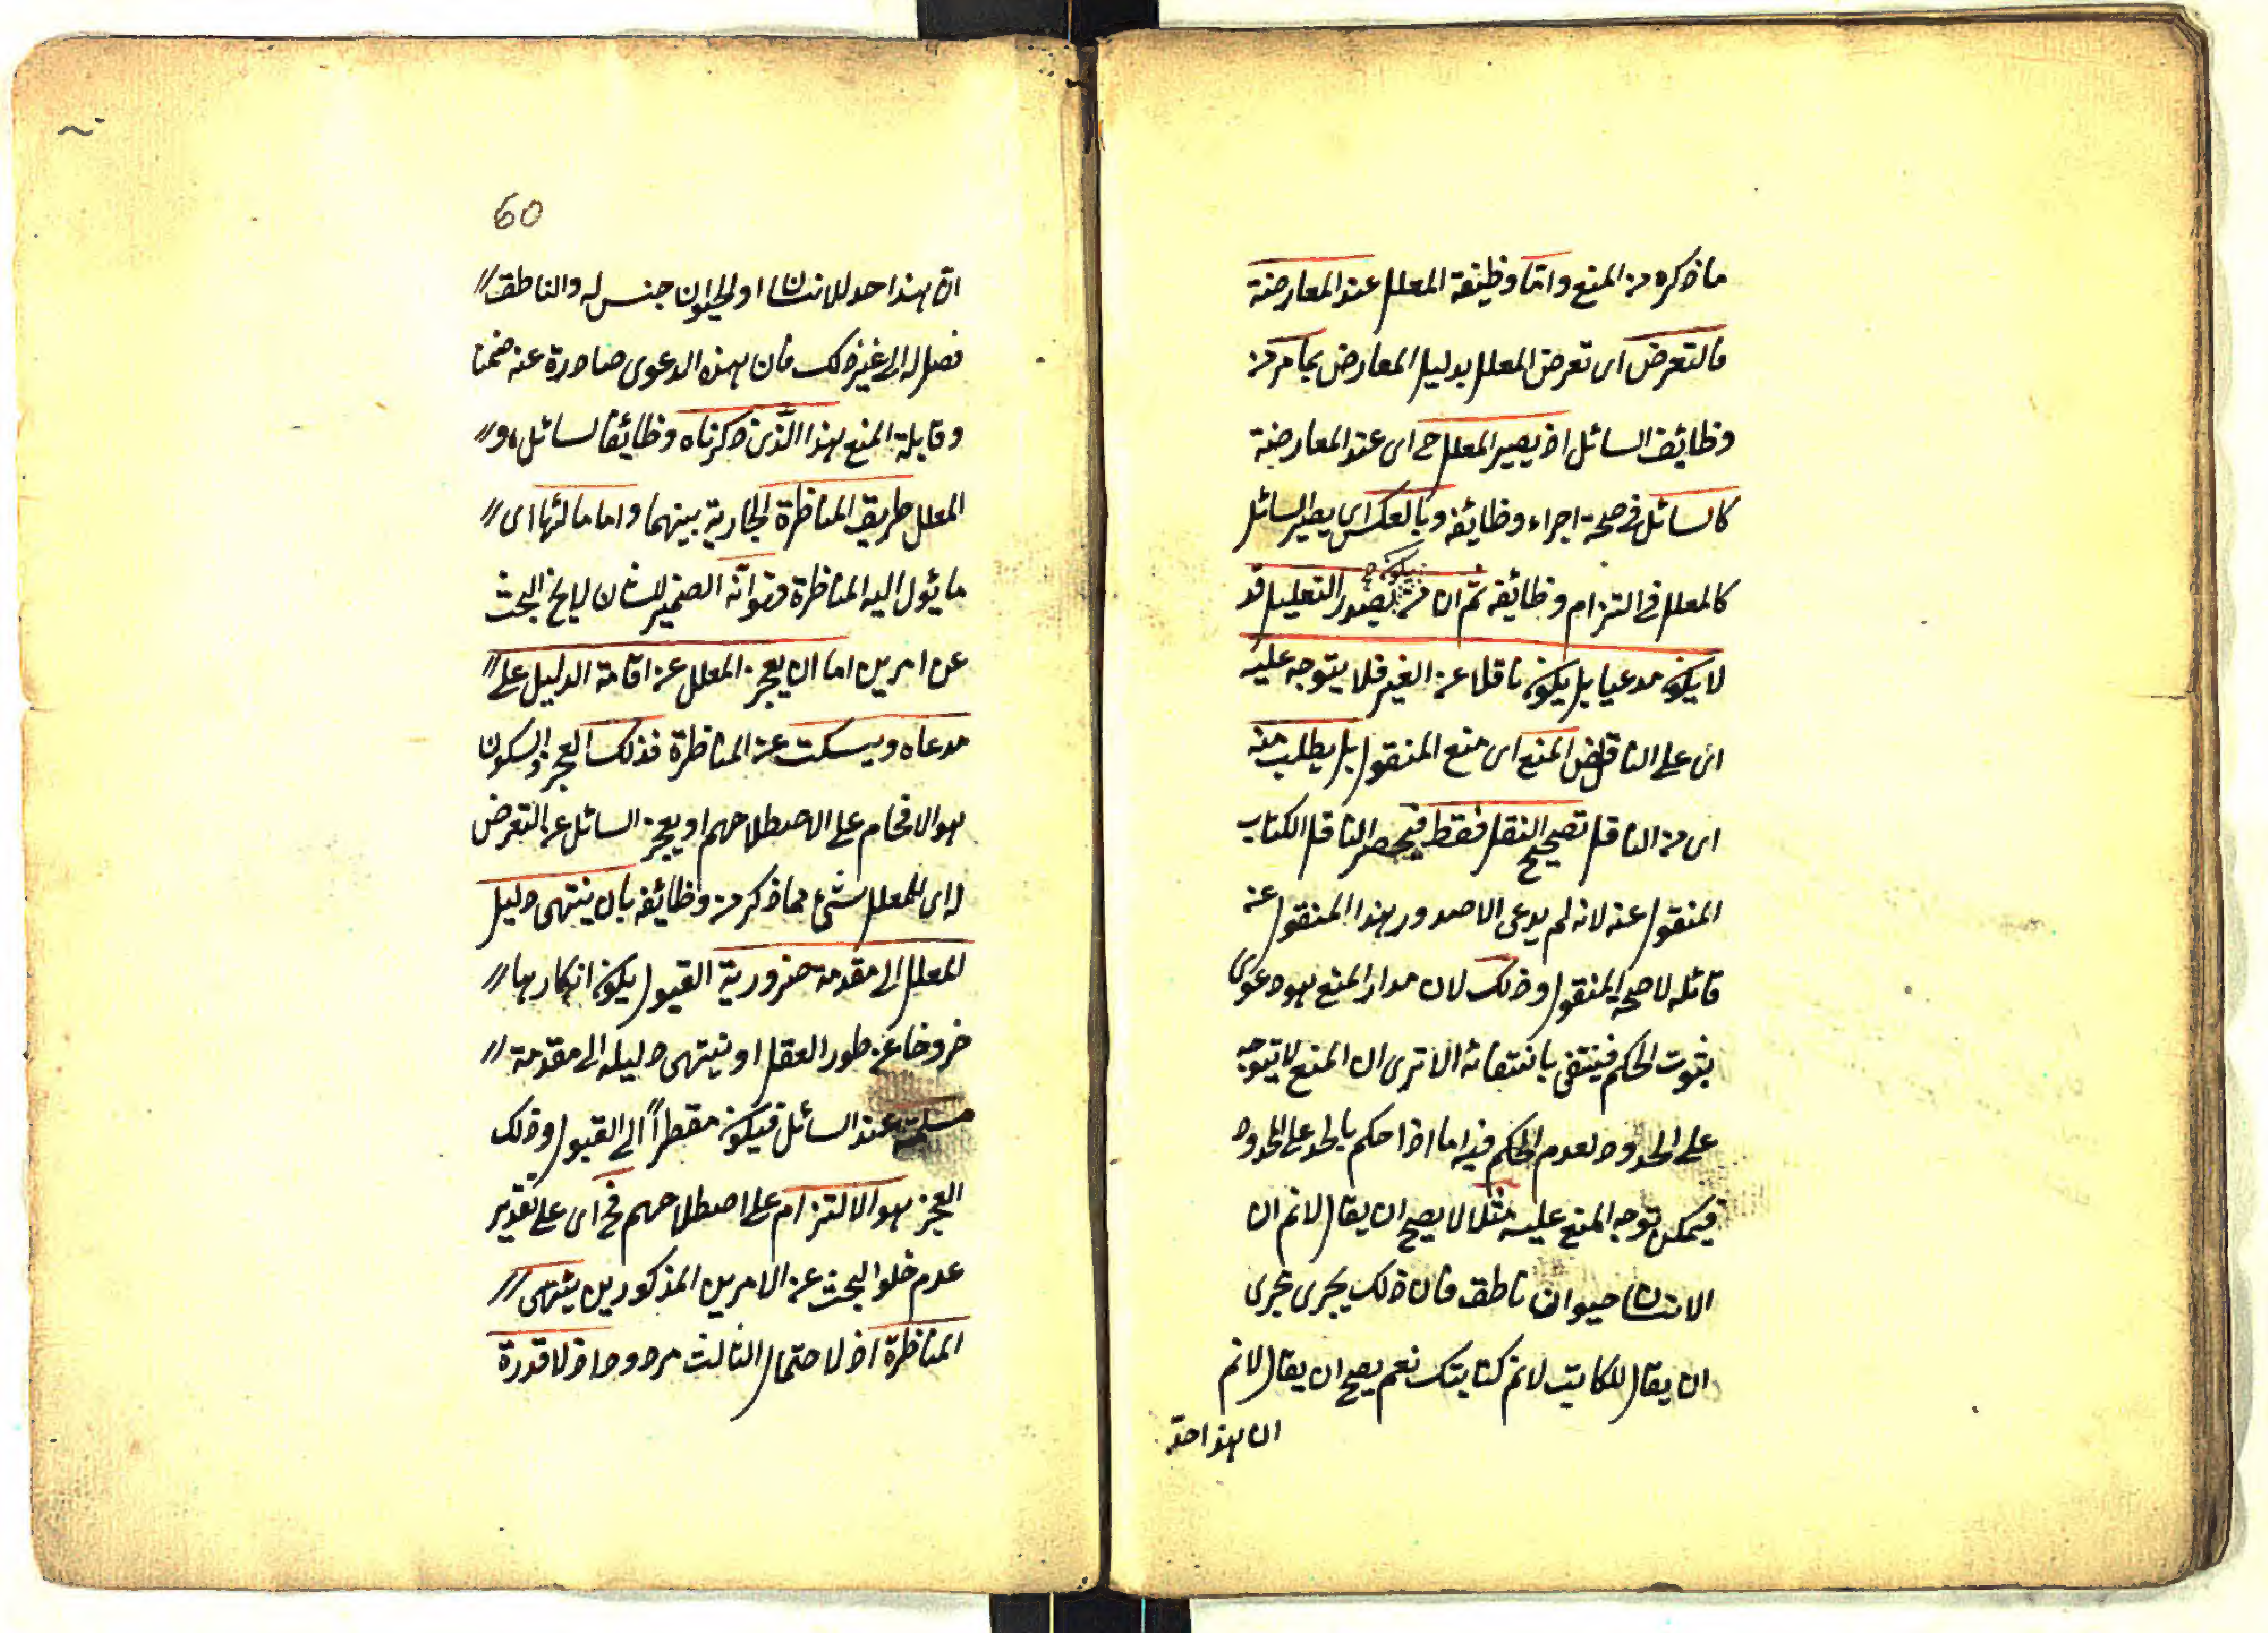 ما ذكره من المنع واما وظيفة المعلل عند المعارضة
فالتعرض اى تعرض المعلل بدليل المعارض بما مر من
وظايف السائل اذ يصير المعلل ح اى عند المعارضة
كالسائل فى صحة اجراء وظائفه وبالعكس اى يصير السائل
كالمعلل فى التزام وظائفه ثم ان من يكون بصدد التعليل قد
لا يكون مدعيا بل يكون ناقلا عن الغير فلا يتوجه عليه
اى على الناقل المنع اى منع المنقول بل يطلب منه
اى من الناقل تصحيح النقل فقط فيحضر الناقل الكتاب
المنقول عنه لانه لم يدعى الا صدور هذا المنقول عنه
قائله لا صحة المنقول وذلك لان مدار المنع هو دعوى
بثبوت الحكم فينتفى بانتفائه الا ترى ان المنع لا يتوجه
على الحدود لعدم الحكم فيه اما اذا حكم بالحد على المحدود
فيمكن توجه المنع عليه مثلا لا يصح ان يقال لانم ان
الانسان حيوان ناطق فان ذلك يجرى مجرى
ان يقال للكاتب لانم كتابتك نعم يصح ان يقال لانم
ان هذا حد
60
ان هذا حد للانسان او الحيوان جنس له والناطق //
فصل له الى غير ذلك فان هذه الدعوى صادرة عنه ضمنا
وقابلة المنع هذا الذى ذكرناه وظائف السائل و //
المعلل طريق المناظرة الجارية بينهما واما مالها اى //
ما يئول اليه المناظرة فهو انه الضمير للشان لا يخ البحث
عن امرين اما ان يعجز المعلل عن اقامة الدليل على //
مدعاه ويسكت عن المناظرة فذلك العجز والسكون
هو الافحام على اصطلاحهم او يعجز السائل عن التعرض
له اى للمعلل شئ مما ذكر من وظائفه بان ينتهى دليل
المعلل الى مقدمة ضرورية القبول يكون انكارها //
خروجا عن طور العقل او ينتهى دليله الى مقدمة //
مسلمة عند السائل فيكون مقطرا الى القبول وذلك
العجز هو الالتزام على اصطلاحهم فح اى على تقدير
عدم خلو البحث عن الامرين المذكورين ينتهى //
المناظرة اذ لا حتمال الثالث مردود اذ لا قدرة